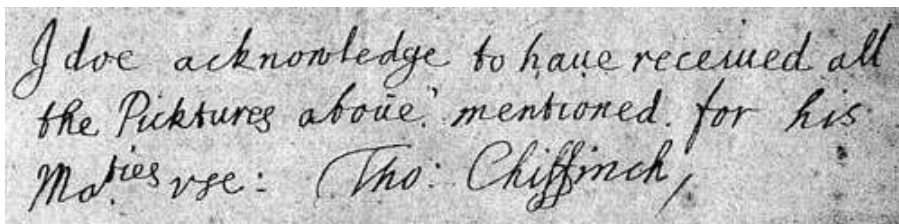 I doe acknowledge to haue receiued all
the Picktures aboue mentioned. for his
Ma:ties vse: Tho: Chiffinch,